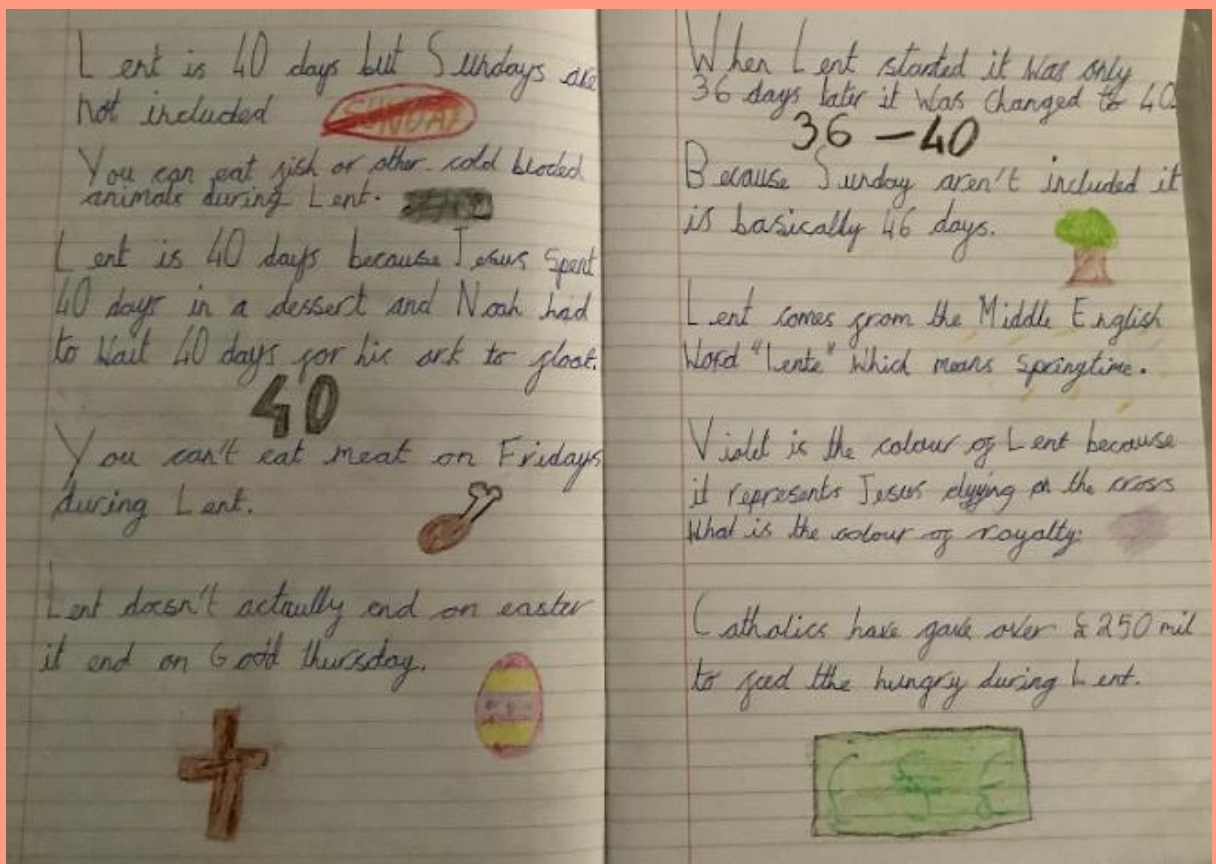 Lent is 40 days but Sundays are
not included
SUNDAY
You can eat fish or other cold bloded
animals during Lent.
Lent is 40 days because Jesus spent
40 days in a dessert and Noah had
to wait 40 days for his ark to float.
40
You can't eat meat on Fridays
during Lent.
Lent doesn't actaully end on easter
it end on Godd thursday.
When Lent started it was only
36 days later it was changed to 40.
36 - 40
Because Sunday aren't included it
is basically 46 days.
Lent comes from the Middle English
word "lente" which means springtime.
Violet is the colour of Lent because
it represents Jesus dyying on the cross
What is the colour of royalty.
Catholics have gave over £250 mil
to feed tthe hungry during Lent.
£ $ £